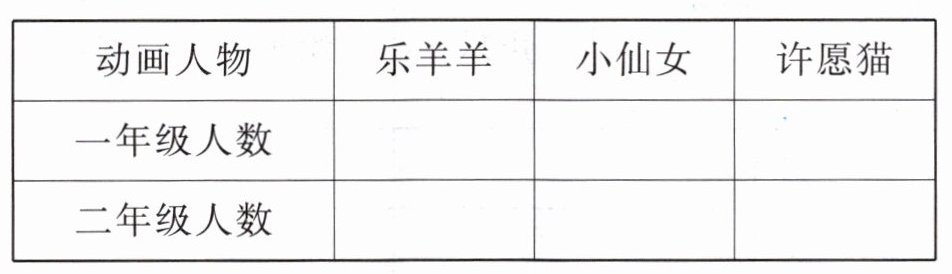 动画人物 乐羊羊 小仙女 许愿猫
一年级人数
二年级人数